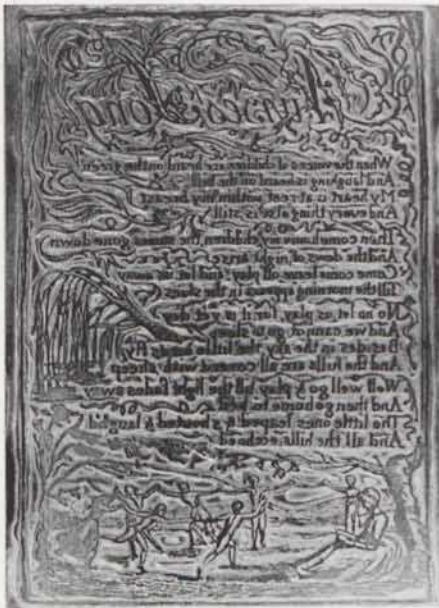 Nurse's Song
When the voices of children are heard on the green
And laughing is heard on the hill
My heart is at rest within my breast
And every thing else is still
Then come home my children, the sun is gone down
And the dews of night arise
Come come leave off play, and let us away
Till the morning appears in the skies
No no let us play, for it is yet day
And we cannot go to sleep
Besides in the sky, the little birds fly
And the hills are all coverd with sheep
Well well go & play till the light fades away
And then go home to bed
The little ones leaped & shouted & laugh'd
And all the hills ecchoed